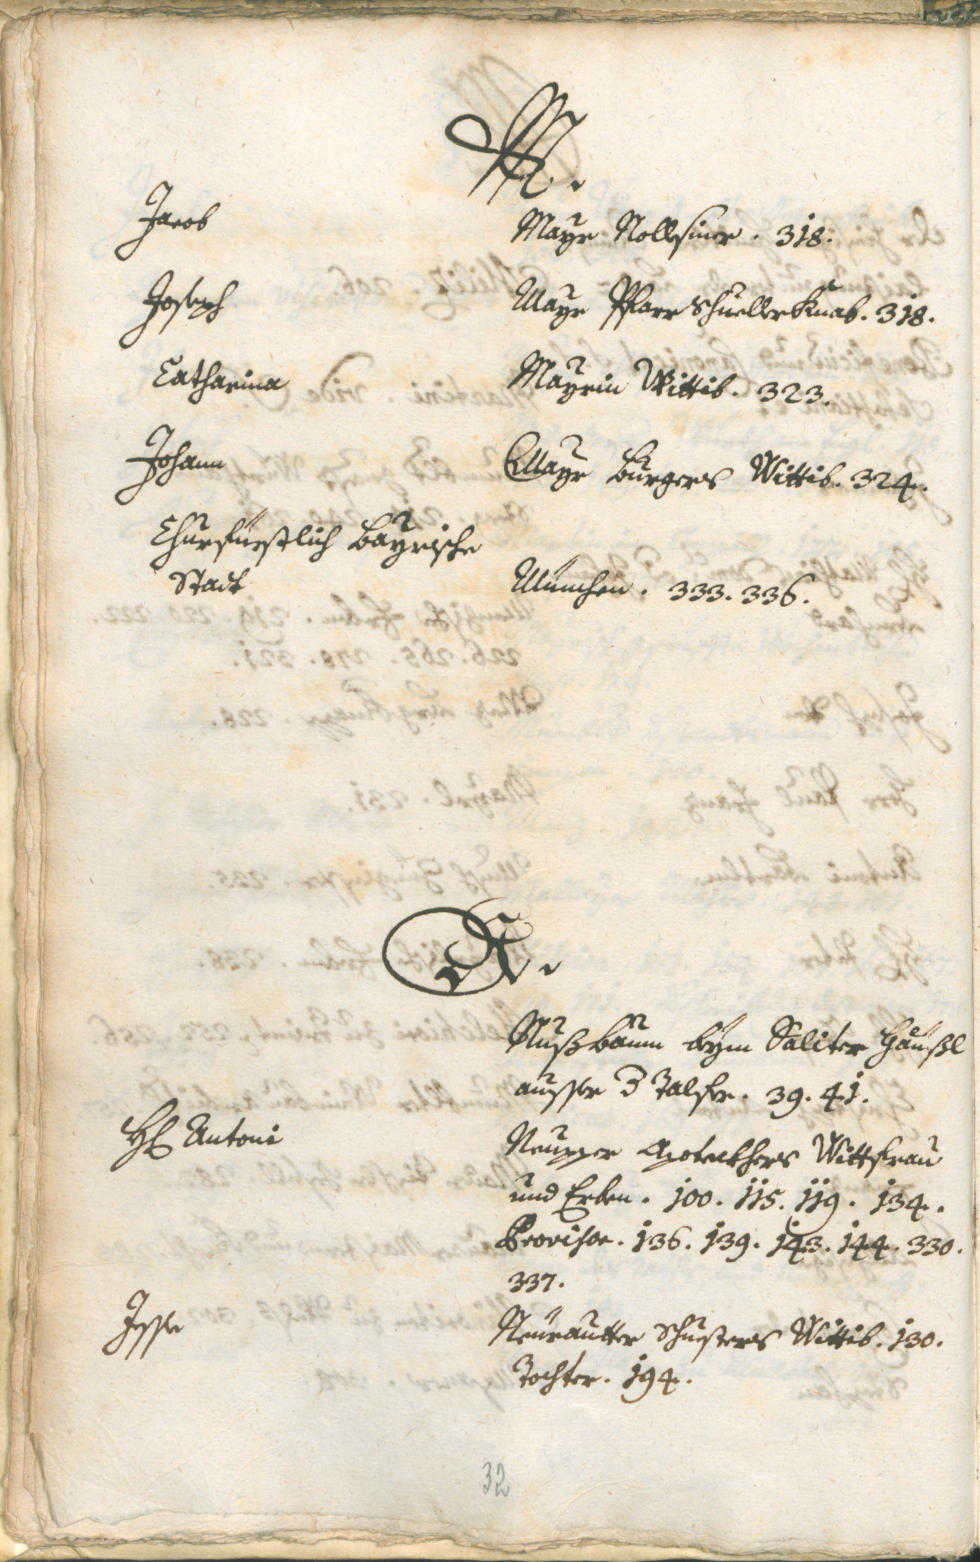 M.
Jacob Mayr Nollsiner. 318.
Joseph Mayr Pfarrschueller Knab. 318.
Catharina Mayrin Wittib. 323.
Johann Mayr burgers Wittib. 324.
Churfürstlich bayrische
Stadt München. 333. 336.
N.
Nußbaum beym Saliter Häußl
ausser Talfer. 39. 41.
H Antoni Neupper Apoteckhers Wittfrau
und Erben. 100. 115. 119. 134.
Provisor. 136. 139. 143. 144. 330.
337.
Jesse Neurautter Schusters Wittib. 130.
Tochter. 194.
32